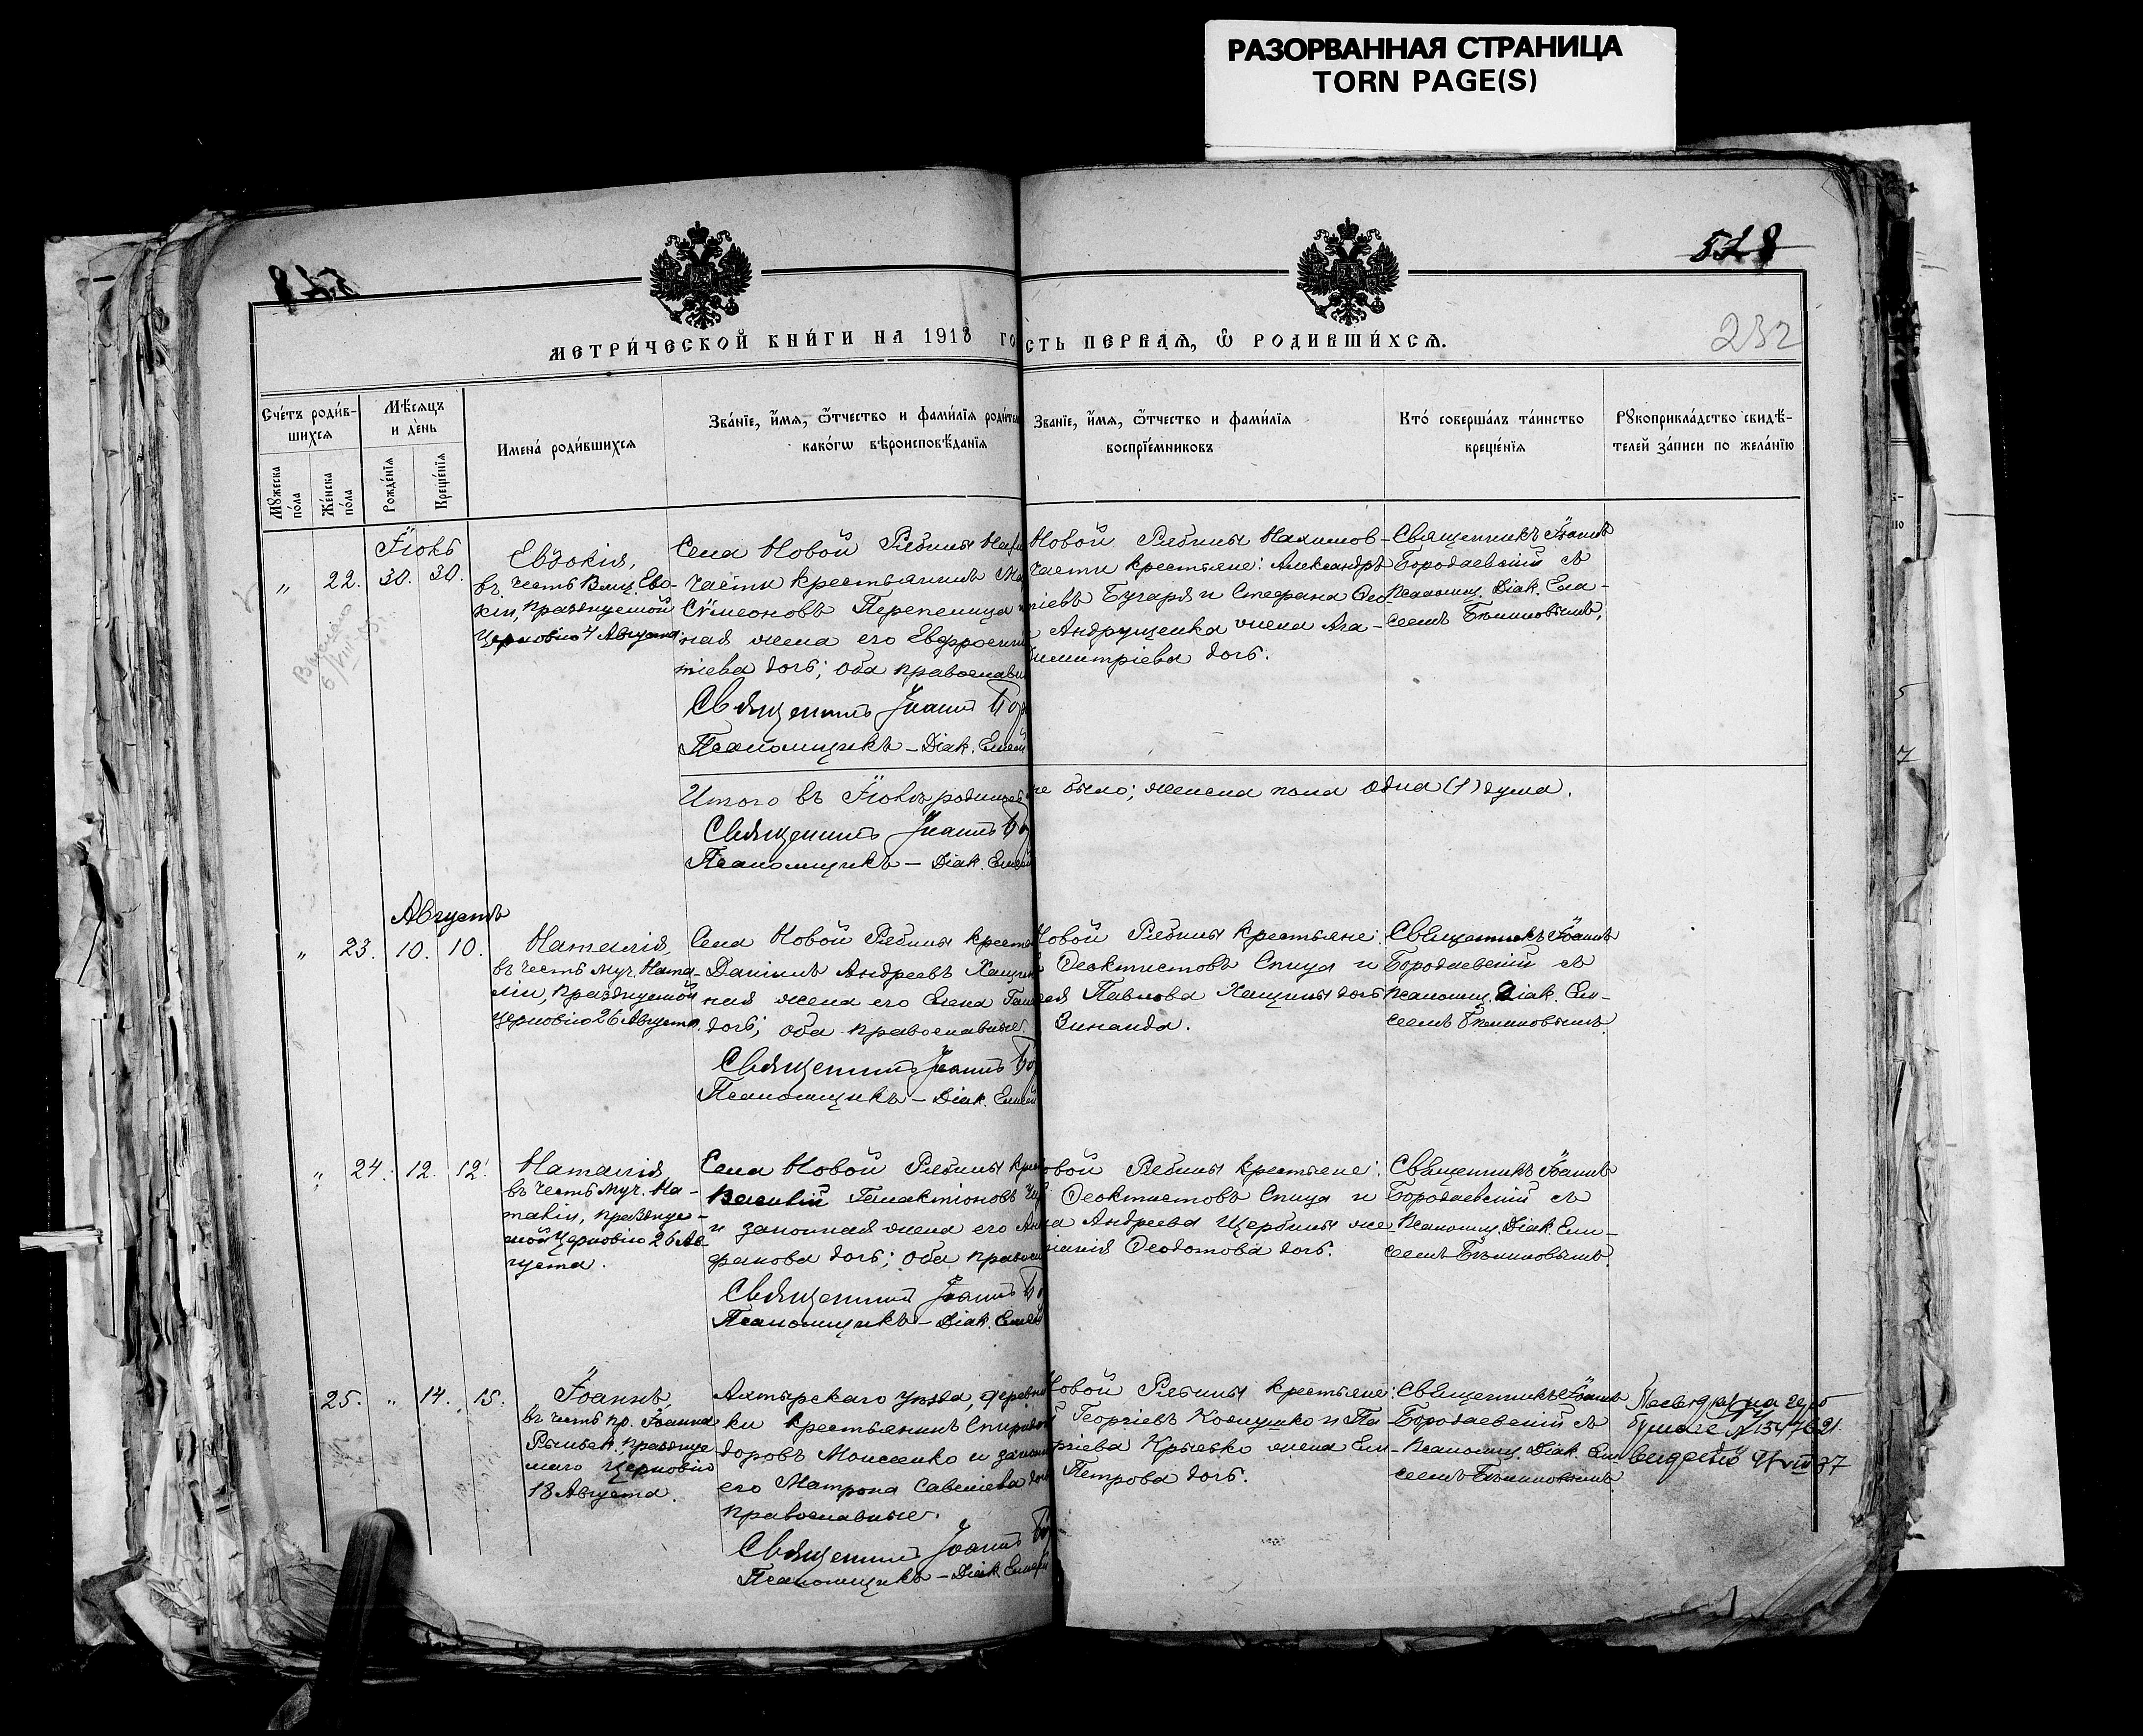 РАЗОРВАННАЯ СТРАНИЦА
TORN PAGE(S)
528
232
МЕТРИ́ЧЕСКОЙ КНИ́ГИ НА 1918 ГО
СТЬ ПЕРВАѦ, Ѡ РОДИВШИ́ХСѦ.
Счéтъ роди́в-
шихсѧ
Мꙋжеска
пóла
Жéнска
пóла
Мѣ́сѧцъ
и дéнь
Рождéнїѧ
Крещéнїѧ
Именá роди́вшихсѧ
Звáнїе, и́мѧ, ѻ҆́тчество и фами́лїѧ роди́те
какóгѡ вѣроисповѣ́данїѧ
Звáнїе, и́мѧ, ѻ҆́тчество и фами́лїѧ
воспрїéмниковъ
Ктó совершáлъ тáинство
крещéнїѧ
Рꙋкоприклáдство свидѣ́-
телей зáписи по желáнїю
Іюль
" 22. 30. 30.
Евдокія,
въ честь Влмц. Евдо-
кіи, празднуемой
Церковію 4 Августа.
Села Новой Рябины
части крестьянинъ
Сѵмеоновъ Перепелица
ная жена его Евфросин
тіева дочь; оба православн
Священникъ Іоаннъ Бор
Псаломщикъ – Діак. Елисей
Новой Рябины Нахимов-
части крестьяне: Александръ
ріевъ Бугаря и Стефана Ѳео-
Андрущенка жена Ага-
Димитріева дочь.
Священникъ Іоаннъ
Бородаевскій съ
псаломщ. Діак. Ели-
сеемъ Бѣликовымъ.
Итого въ Іюлѣ родивш
не было; женска пола одна (1) душа.
Священникъ Іоаннъ Бо
Псаломщикъ – Діак. Елисей
Августъ
" 23. 10. 10.
Наталія,
въ честь муч. Ната-
ліи, празднуемой
Церковію 26 Августа.
Села Новой Рябины крест
Даніилъ Андреевъ Хащин
ная жена его Елена
дочь; оба православные.
Священникъ Іоаннъ Бо
Псаломщикъ – Діак. Елисей
Новой Рябины крестьяне:
Ѳеоктистовъ Спица и
Павлова Хащины дочь
Зинаида.
Священникъ Іоаннъ
Бородаевскій съ
псаломщ. Діак. Ели-
сеемъ Бѣликовымъ.
" 24. 12. 12.
Наталія,
въ честь муч. На-
таліи, праздну-
мой Церковію 26 Ав-
густа.
Села Новой Рябины
Василій Галактіоновъ
и законная жена его Анна
фанова дочь; оба правосл
Священникъ Іоаннъ Бо
Псаломщикъ – Діак. Елисей
Новой Рябины крестьяне:
Ѳеоктистовъ Спица и
Андреева Щербины же-
Ѳеодотова дочь.
Священникъ Іоаннъ
Бородаевскій съ
псаломщ. Діак. Ели-
сеемъ Бѣликовымъ.
25. " 14. 15.
Іоаннъ,
въ честь пр. Іоанна
Рыльск. праздну
маго Церковію
18 Августа.
Ахтырскаго уѣзда, дерев
ки крестьянинъ Спиридон
доровъ Моисеенко и закон
его Матрона Савелиева дочь
православные.
Священникъ Іоаннъ Бо
Псаломщикъ – Діак. Елисей
Новой Рябины крестьяне:
Георгіевъ Колпушко и Па-
ргіева Крысько жена Ели-
Петрова дочь.
Священникъ Іоаннъ
Бородаевскій съ
псаломщ. Діак. Ели
сеемъ Бѣликовымъ